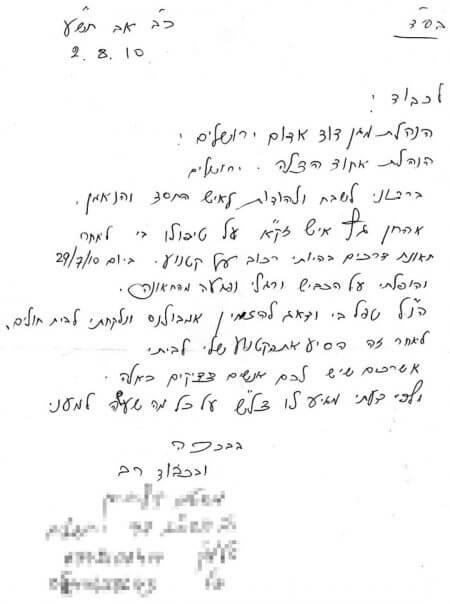 בס"ד
כ"ב אב תש"ע
2.8.10
לכבוד:
הנהלת מגן דוד אדום ירושלים:
הנהלת אחוד הצלה. ירושלים
ברצוני לשבח ולהודות לאיש החסד והנאמן.
איש זק"א על טיפולו בי לאחר
תאונת דרכים בהיותי רכוב על קטנוע. ביום 29/7/10
והופלתי על הכביש ורגלי נפגעה מהתאונה.
הנ"ל טפל בי ודאג להזמין אמבולנס ונלקחתי לבית חולים,
לאחר זה הסיע את קטנוע שלי לביתי
אשרכם שיש לכם אנשים צדיקים כאלה.
ולפי דעתי מגיע לו צל"ש על כל מה שעשה למעני
בברכה
ובכבוד רב